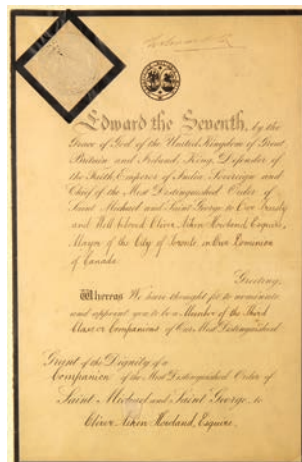 Edward the Seventh, by the
Grace of God of the United Kingdom of Great
Britain and Ireland, King, Defender of
the Faith, Emperor of India, Sovereign and
Chief of the Most Distinguished Order of
Saint Michael and Saint George, to Our Trusty
and Well beloved Oliver Aiken Howland, Esquire,
Mayor of the City of Toronto, in Our Dominion
of Canada.
Greeting,
Whereas We have thought fit to nominate
and appoint you to be a Member of the Third
Class or Companions of Our Most Distinguished
Grant of the Dignity of a
Companion of the Most Distinguished Order of
Saint Michael and Saint George, to
Oliver Aiken Howland, Esquire.